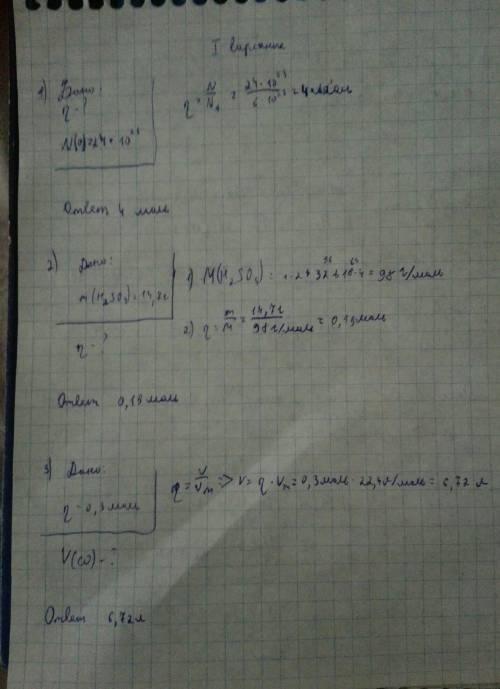 I вариант
1) Дано:
η - ?
N(O) = 24 * 10²³
η = N/N₁ = 24 * 10²³ / 6 10²³ = 4 моль
Ответ 4 моль
2) Дано:
m(H₂SO₄) = 14,7г
η - ?
1) M(H₂SO₄) = = 98 г/моль
2) η = m/M = 14,7г / 98 г/моль = 0,15 моль
Ответ 0,15 моль
3) Дано:
η - 0,3 моль
V(CO) - ?
η = V/Vm => V = η * Vm = 0,3 моль * 22,4 л/моль = 6,72 л
Ответ 6,72 л